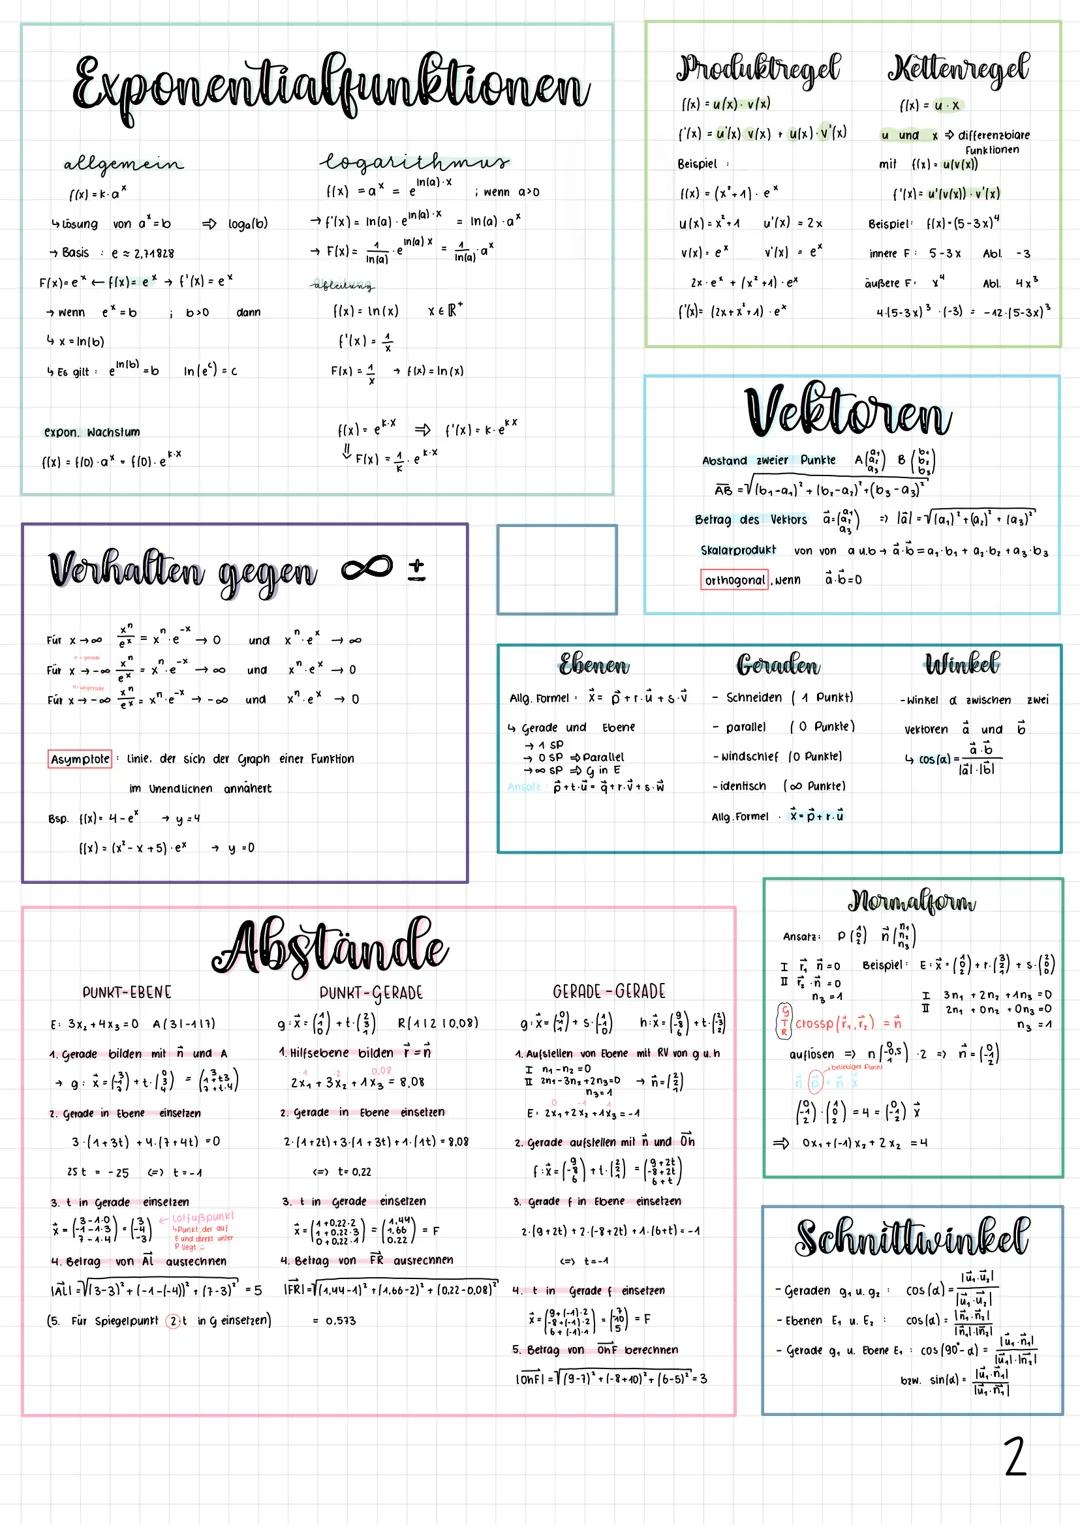 Exponentialfunktionen
allgemein
f(x) = k · a^x
↳ Lösung von a^x = b ⇒ log_a(b)
→ Basis : e ≈ 2,71828
F(x) = e^x ← f(x) = e^x → f'(x) = e^x
→ wenn e^x = b ; b>0 dann
↳ x = ln(b)
↳ Es gilt : e^ln(b) = b ln(e^c) = c
expon. Wachstum
f(x) = f(0) · a^x = f(0) · e^k·x
logarithmus
f(x) = a^x = e^ln(a)·x ; wenn a>0
→ f'(x) = ln(a) · e^ln(a)·x = ln(a) · a^x
→ F(x) = 1/ln(a) · e^ln(a) x = 1/ln(a) · a^x
ableitung
f(x) = ln(x) x ∈ ℝ⁺
f'(x) = 1/x
F(x) = 1/x → f(x) = ln(x)
f(x) = e^k·x ⇒ f'(x) = k · e^k x
⇓ F(x) = 1/k · e^k·x
Produktregel
f(x) = u(x) · v(x)
f'(x) = u'(x) v(x) + u(x) · v'(x)
Beispiel :
f(x) = (x² + 1) · e^x
u(x) = x² + 1 u'(x) = 2x
v(x) = e^x v'(x) = e^x
2x · e^x + (x² + 1) · e^x
f'(x) = (2x + x² + 1) · e^x
Kettenregel
f(x) = u · x
u und x ⇒ differenzbiare
Funktionen
mit f(x) = u(v(x))
f'(x) = u'(v(x)) · v'(x)
Beispiel: f(x) = (5-3x)⁴
innere F: 5-3x Abl. -3
äußere F: x⁴ Abl. 4x³
4·(5-3x)³ · (-3) = -12·(5-3x)³
Vektoren
Abstand zweier Punkte A(a₁ a₂ a₃) B(b₁ b₂ b₃)
AB = √(b₁-a₁)² + (b₂-a₂)² + (b₃-a₃)²
Betrag des Vektors a⃗ = (a₁ a₂ a₃) ⇒ |a⃗| = √(a₁)² + (a₂)² + (a₃)²
Skalarprodukt von von a u.b → a⃗·b⃗ = a₁·b₁ + a₂·b₂ + a₃·b₃
orthogonal, wenn a⃗·b⃗ = 0
Verhalten gegen ∞ ±
Für x → ∞ x^n/e^x = x^n · e^-x → 0 und x^n · e^x → ∞
n = gerade
Für x → -∞ x^n/e^x = x^n · e^-x → ∞ und x^n · e^x → 0
n = ungerade
Für x → -∞ x^n/e^x = x^n · e^-x → -∞ und x^n · e^x → 0
Asymptote : Linie, der sich der Graph einer Funktion
im Unendlichen annähert
Bsp. f(x) = 4 - e^x → y = 4
f(x) = (x² - x + 5) · e^x → y = 0
Ebenen
Allg. Formel : x⃗ = p⃗ + r·u⃗ + s·v⃗
↳ Gerade und Ebene
→ 1 SP
→ 0 SP ⇒ Parallel
→ ∞ SP ⇒ G in E
Ansatz p⃗ + t·u⃗ = q⃗ + r·v⃗ + s·w⃗
Geraden
- Schneiden (1 Punkt)
- parallel (0 Punkte)
- windschief (0 Punkte)
- identisch (∞ Punkte)
Allg. Formel · x⃗ = p⃗ + r·u⃗
Winkel
- Winkel α zwischen zwei
vektoren a⃗ und b⃗
↳ cos(α) = a⃗·b⃗ / |a⃗|·|b⃗|
Abstände
PUNKT-EBENE
E: 3x₂ + 4x₃ = 0 A(3|-1|7)
1. Gerade bilden mit n⃗ und A
→ g : x⃗ = (3 -1 7) + t·(0 3 4) = (3 -1+t3 7+t·4)
2. Gerade in Ebene einsetzen
3·(-1+3t) + 4·(7+4t) = 0
25t = -25 (=) t = -1
3. t in Gerade einsetzen
x⃗ = (3-1·0 -1-1·3 7-1·4) = (3 -4 3) ← Lotfußpunkt
↳ Punkt, der auf
E und direkt unter
P liegt
4. Betrag von AL ausrechnen
|AL| = √(3-3)² + (-1-(-4))² + (7-3)² = 5
(5. Für Spiegelpunkt 2·t in G einsetzen)
PUNKT-GERADE
g : x⃗ = (1 1 0) + t·(2 3 1) R(1|2|0,08)
1. Hilfsebene bilden r⃗ = n⃗
1 2 0,08
2x₁ + 3x₂ + 1x₃ = 8,08
2. Gerade in Ebene einsetzen
2·(1+2t) + 3·(1+3t) + 1·(1t) = 8,08
(=) t = 0.22
3. t in Gerade einsetzen
x⃗ = (1+0,22·2 1+0,22·3 0+0,22·1) = (1,44 1.66 0.22) = F
4. Betrag von FR ausrechnen
|FR| = √(1,44-1)² + (1,66-2)² + (0,22-0,08)²
= 0.573
GERADE - GERADE
h : x⃗ = (9 -8 6) + t·(2 -3 2)
1. Aufstellen von Ebene mit RV von g u. h
I n₁ - n₂ = 0
II 2n₁ - 3n₂ + 2n₃ = 0 → n⃗ = (2 2 1)
n₃ = 1
0 -1 1
E: 2x₁ + 2x₂ + 1x₃ = -1
2. Gerade aufstellen mit n⃗ und Oh
f : x⃗ = (9 -8 6) + t·(2 2 1) = (9+2t -8+2t 6+t)
3. Gerade f in Ebene einsetzen
2·(9+2t) + 2·(-8+2t) + 1·(6+t) = -1
(=) t = -1
4. t in Gerade f einsetzen
x⃗ = (9+(-1)·2 -8+(-1)·2 6+(-1)·1) = (7 -10 5) = F
5. Betrag von OhF berechnen
|OhF| = √(9-7)² + (-8+10)² + (6-5)² = 3
Normalform
Ansatz: P(1 0 2) n⃗(n₁ n₂ n₃)
I r⃗₁ · n⃗ = 0 Beispiel: E : x⃗ = (1 0 2) + r·(3 2 1) + s·(2 0 0)
II r⃗₂ · n⃗ = 0
n₃ = 1
I 3n₁ + 2n₂ + 1n₃ = 0
II 2n₁ + 0n₂ + 0n₃ = 0
n₃ = 1
GTR crossp(r⃗₁, r⃗₂) = n⃗
auflösen ⇒ n(0 -0,5 1) · 2 ⇒ n⃗ = (0 -1 2)
→ beliebiger Punkt
n⃗ · p⃗ = n⃗ · x⃗
(0 -1 2) · (1 0 2) = 4 = (0 -1 2) x⃗
⇒ 0x₁ + (-1) x₂ + 2x₂ = 4
Schnittwinkel
- Geraden g₁ u. g₂ : cos(α) = |u⃗₁·u⃗₂| / |u⃗₁·u⃗₂|
- Ebenen E₁ u. E₂ : cos(α) = |n⃗₁·n⃗₂| / |n⃗₁|·|n⃗₂|
- Gerade g₁ u. Ebene E₁ : cos(90°-α) = |u⃗₁·n⃗₁| / |u⃗₁|·|n⃗₁|
bzw. sin(α) = |u⃗₁·n⃗₁| / |u⃗₁·n⃗₁|
2